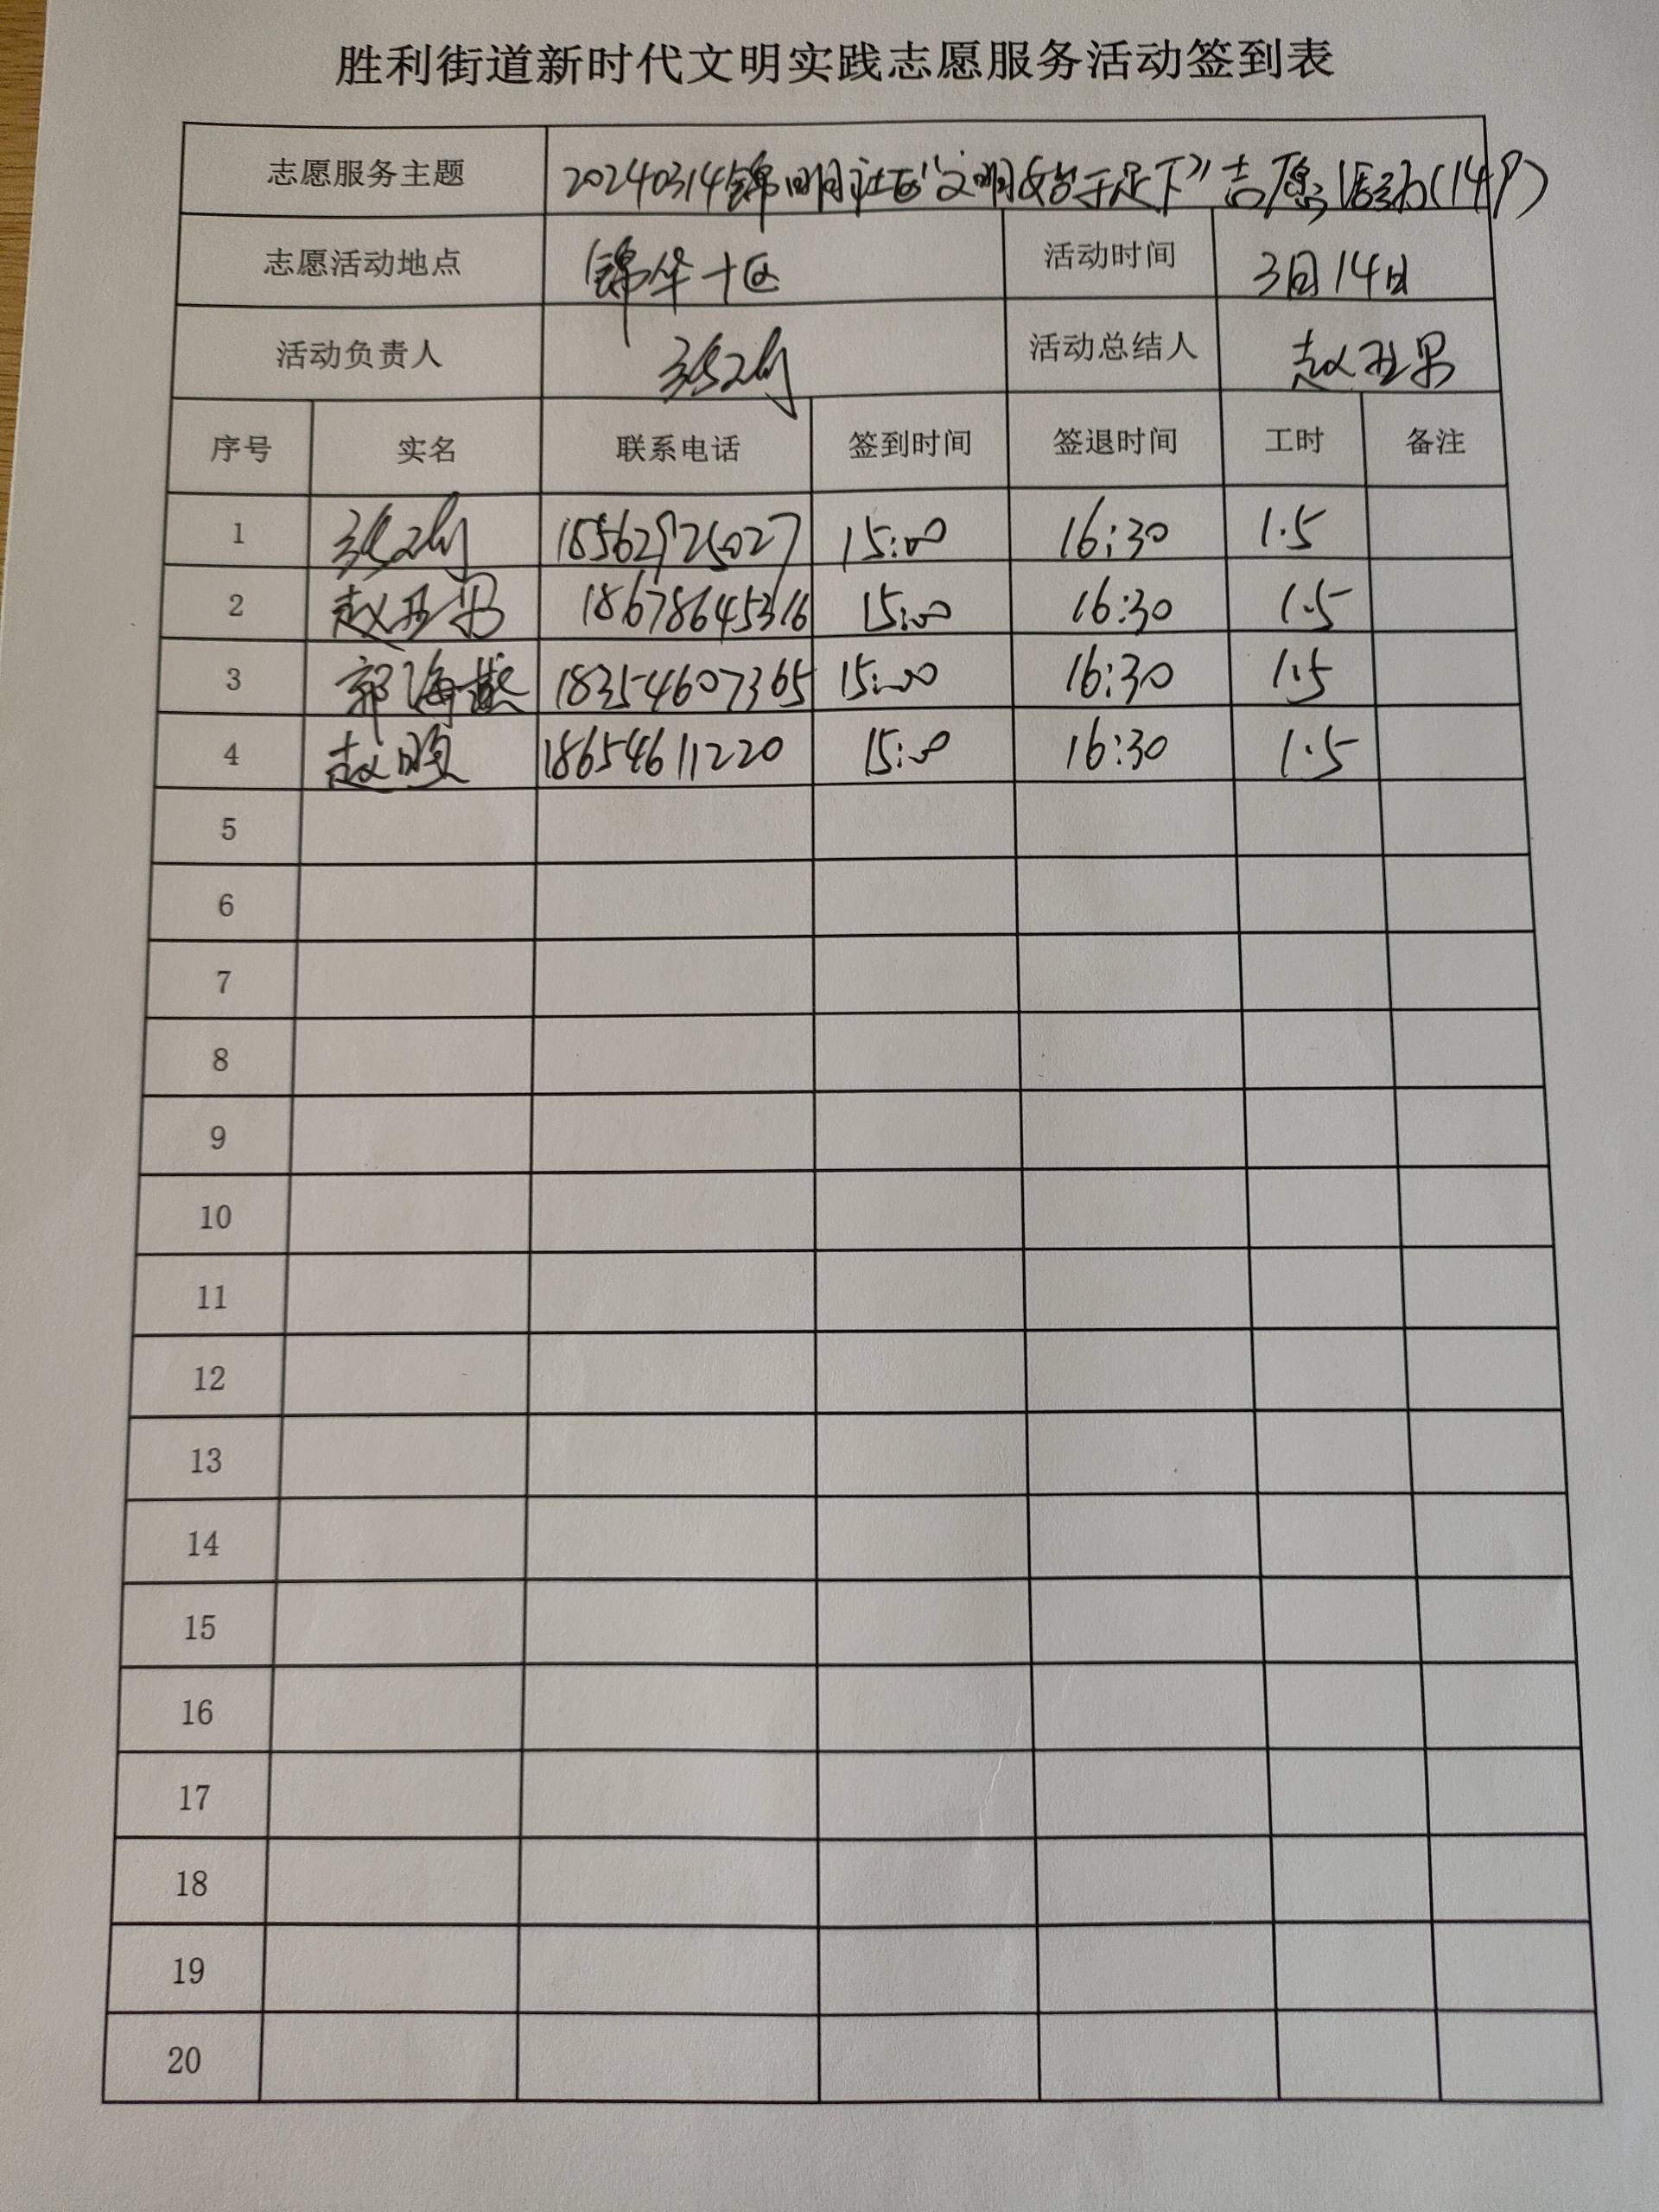 胜利街道新时代文明实践志愿服务活动签到表
志愿服务主题 20240314锦明社区“文明始于足下”志愿活动(14户)
志愿活动地点 锦华十区 活动时间 3月14日
活动负责人 活动总结人 赵亚男
序号 实名 联系电话 签到时间 签退时间 工时 备注
1 18562925027 15:00 16:30 1.5
2 赵亚男 18678645316 15:00 16:30 1.5
3 郭海燕 18354607365 15:00 16:30 1.5
4 赵 18654611220 15:00 16:30 1.5
5
6
7
8
9
10
11
12
13
14
15
16
17
18
19
20